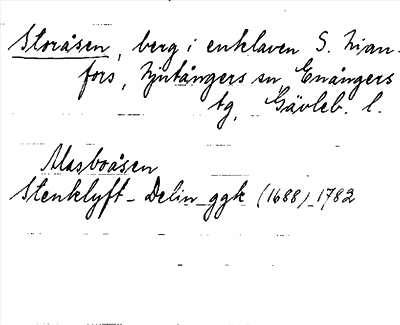 Storåsen, berg i enklaven S. Nian-
fors, Njutångers sn, Enångers
tg, Gävleb. l.
Masboåsen
Stenklyft - Delin ggk (1688) 1782